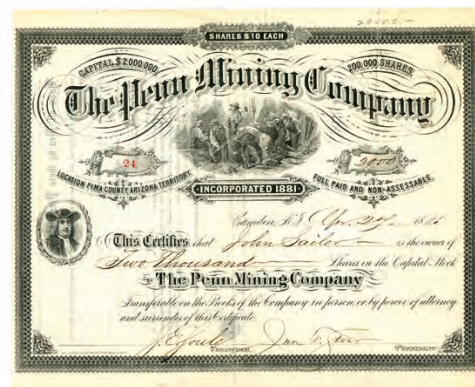 20000.-
SHARES $10 EACH
CAPITAL, $2000,000. 200,000 SHARES.
The Penn Mining Company
24 2000
LOCATION PIMA COUNTY ARIZONA TERRITORY. FULL PAID AND NON-ASSESSABLE.
INCORPORATED 1881
Camden, N.J. Apr. 27 188
This Certifies that John Sailer is the owner of
Two Thousand Shares in the Capital Stock
The Penn Mining Company
Transferable on the Books of the Company in person or by power of attorney
and surrender of this Certificate
TREASURER. PRESIDENT